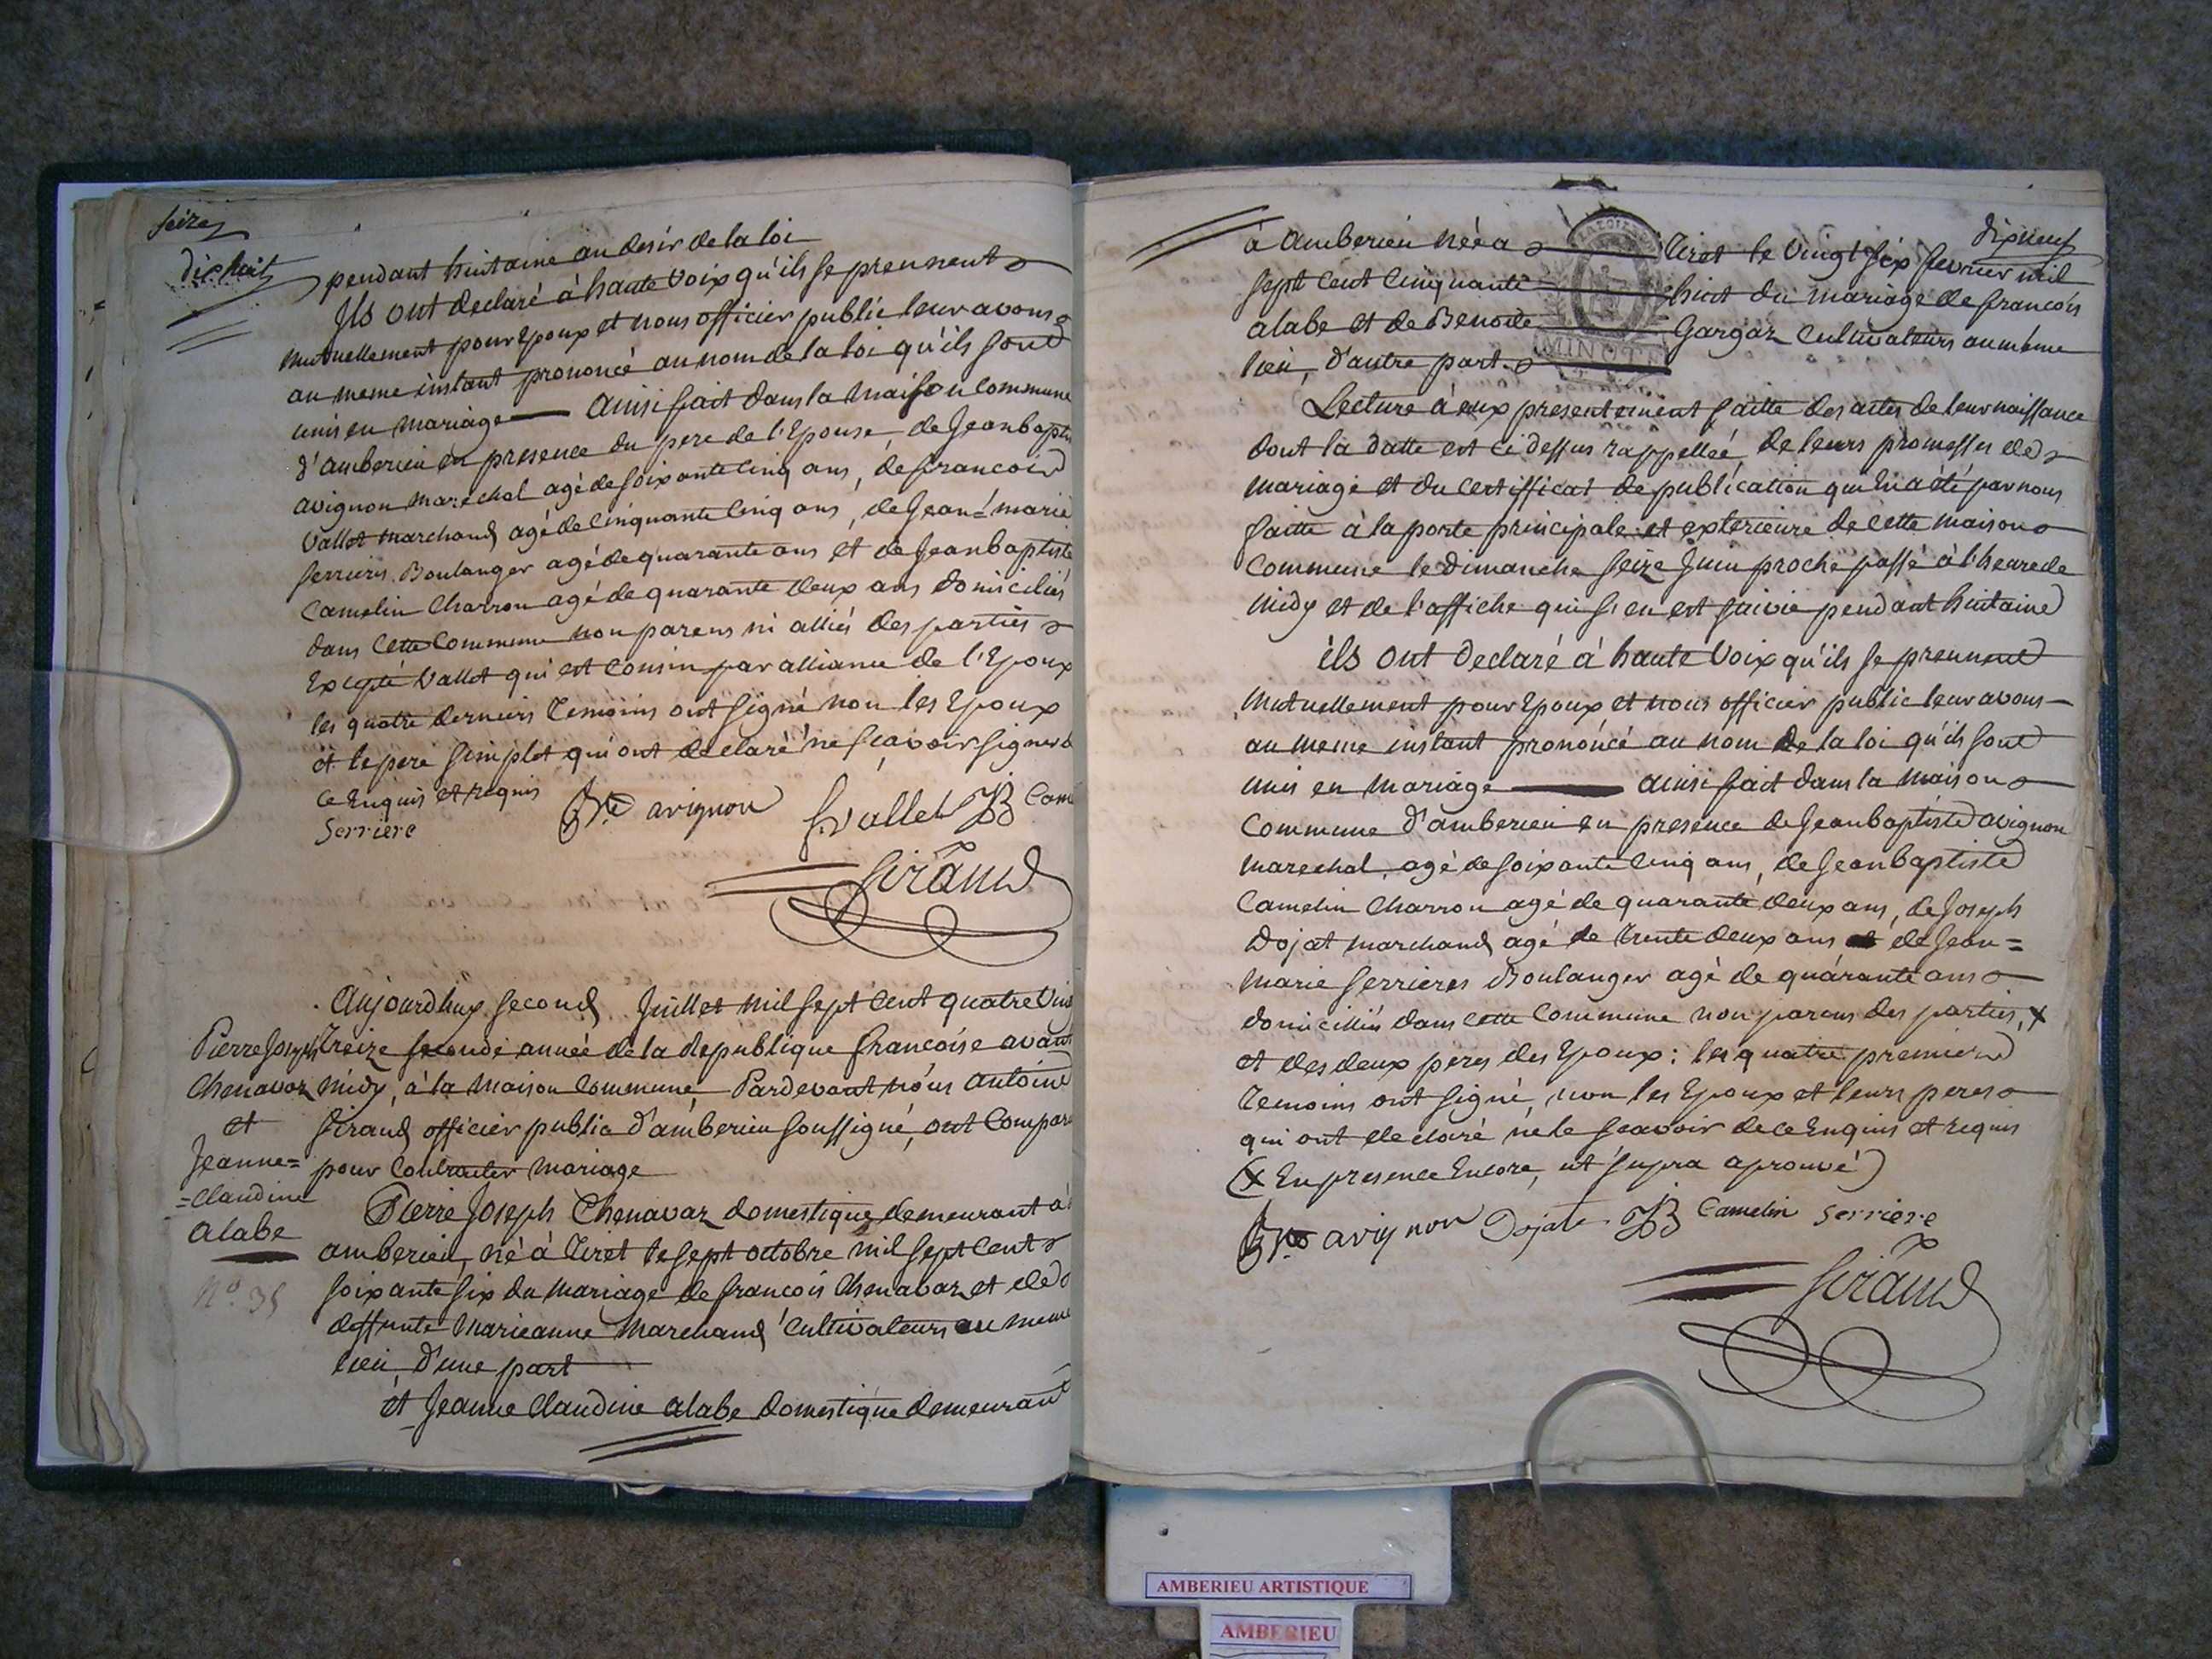 seize
dix huit
pendant huitaine au desir de la loi
Ils ont declaré à haute voix qu'ils se prennent
mutuellement pour Epoux et nous officier public leur avons
au meme instant prononcé au nom de la loi qu'ils sont
unis en mariage — ainsi fait dans la maison commune
d'amberieu en presence du pere de l'Epouse, de Jeanbaptis
avignon marechal agé de soixante cinq ans, de francois
vallet marchand agé de cinquante cinq ans, de Jean=marie
serrieres Boulanger agé de quarante ans et de Jeanbaptiste
Camelin Charron agé de quarante deux ans domiciliés
dans cette Commune non parens ni alliés des parties
Excepté vallet qui est cousin par alliance de l'Epoux
les quatre derniers temoins ont signé non les Epoux
et le pere simplet qui ont declaré ne sçavoir signer
ce Enquis et requis
avignon f. vallet JB Cam
Serriere
Sirand
Aujourdhuy second Juillet mil sept cent quatre vin
treize seconde année de la Republique francoise avant
midy, à la maison Commune, Pardevant nous antoine
Sirand officier public d'amberieu soussigné, ont Compar
pour Contracter mariage
Pierre Joseph
Chenavaz
et
Jeanne=
=Claudine
alabe
N° 35
Pierre Joseph Chenavaz domestique demeurant à
amberieu, né à Tiret le sept octobre mil sept cent
soixante six du mariage de francois Chenavaz et de
deffunte Marieanne Marchand Cultivateurs au meme
lieu, d'une part
et Jeanne Claudine alabe domestique demeurant
dixneuf
à amberieu née a Tiret le vingt six fevrier mil
sept cent cinquante huit du mariage de francois
alabe et de Benoite Gargaz Cultivateurs au même
lieu, d'autre part.
Lecture à eux presentement faitte des actes de leur naissance
dont la datte est ci dessus rappellée, de leurs promesses de
mariage et du certifficat de publication qui En a été par nous
faitte à la porte principale et exterieure de cette maison
commune le dimanche seize Juin proche passé à l'heure de
midy et de l'affiche qui s'en est suivie pendant huitaine
ils ont declaré à haute voix qu'ils se prennent
mutuellement pour Epoux et nous officier public leur avons
au meme instant prononcé au nom de la loi qu'ils sont
unis en mariage — ainsi fait dans la maison
commune d'amberieu en presence de Jeanbaptiste avignon
marechal, agé de soixante cinq ans, de Jeanbaptiste
Camelin Charron agé de quarante deux ans, de Joseph
Dojat marchand agé de trente deux ans et de Jean=
marie serrieres Boulanger agé de quarante ans
domicilliés dans cette Commune non parens des parties, x
et des deux peres des Epoux : les quatre premiers
temoins ont signé, non les Epoux et leurs peres
qui ont declaré ne le scavoir de ce Enquis et requis
(x En presence Encore, ut supra aprouvé)
avignon Dojat JB Camelin Serriere
Sirand
MINUTE
AMBERIEU ARTISTIQUE
AMBERIEU